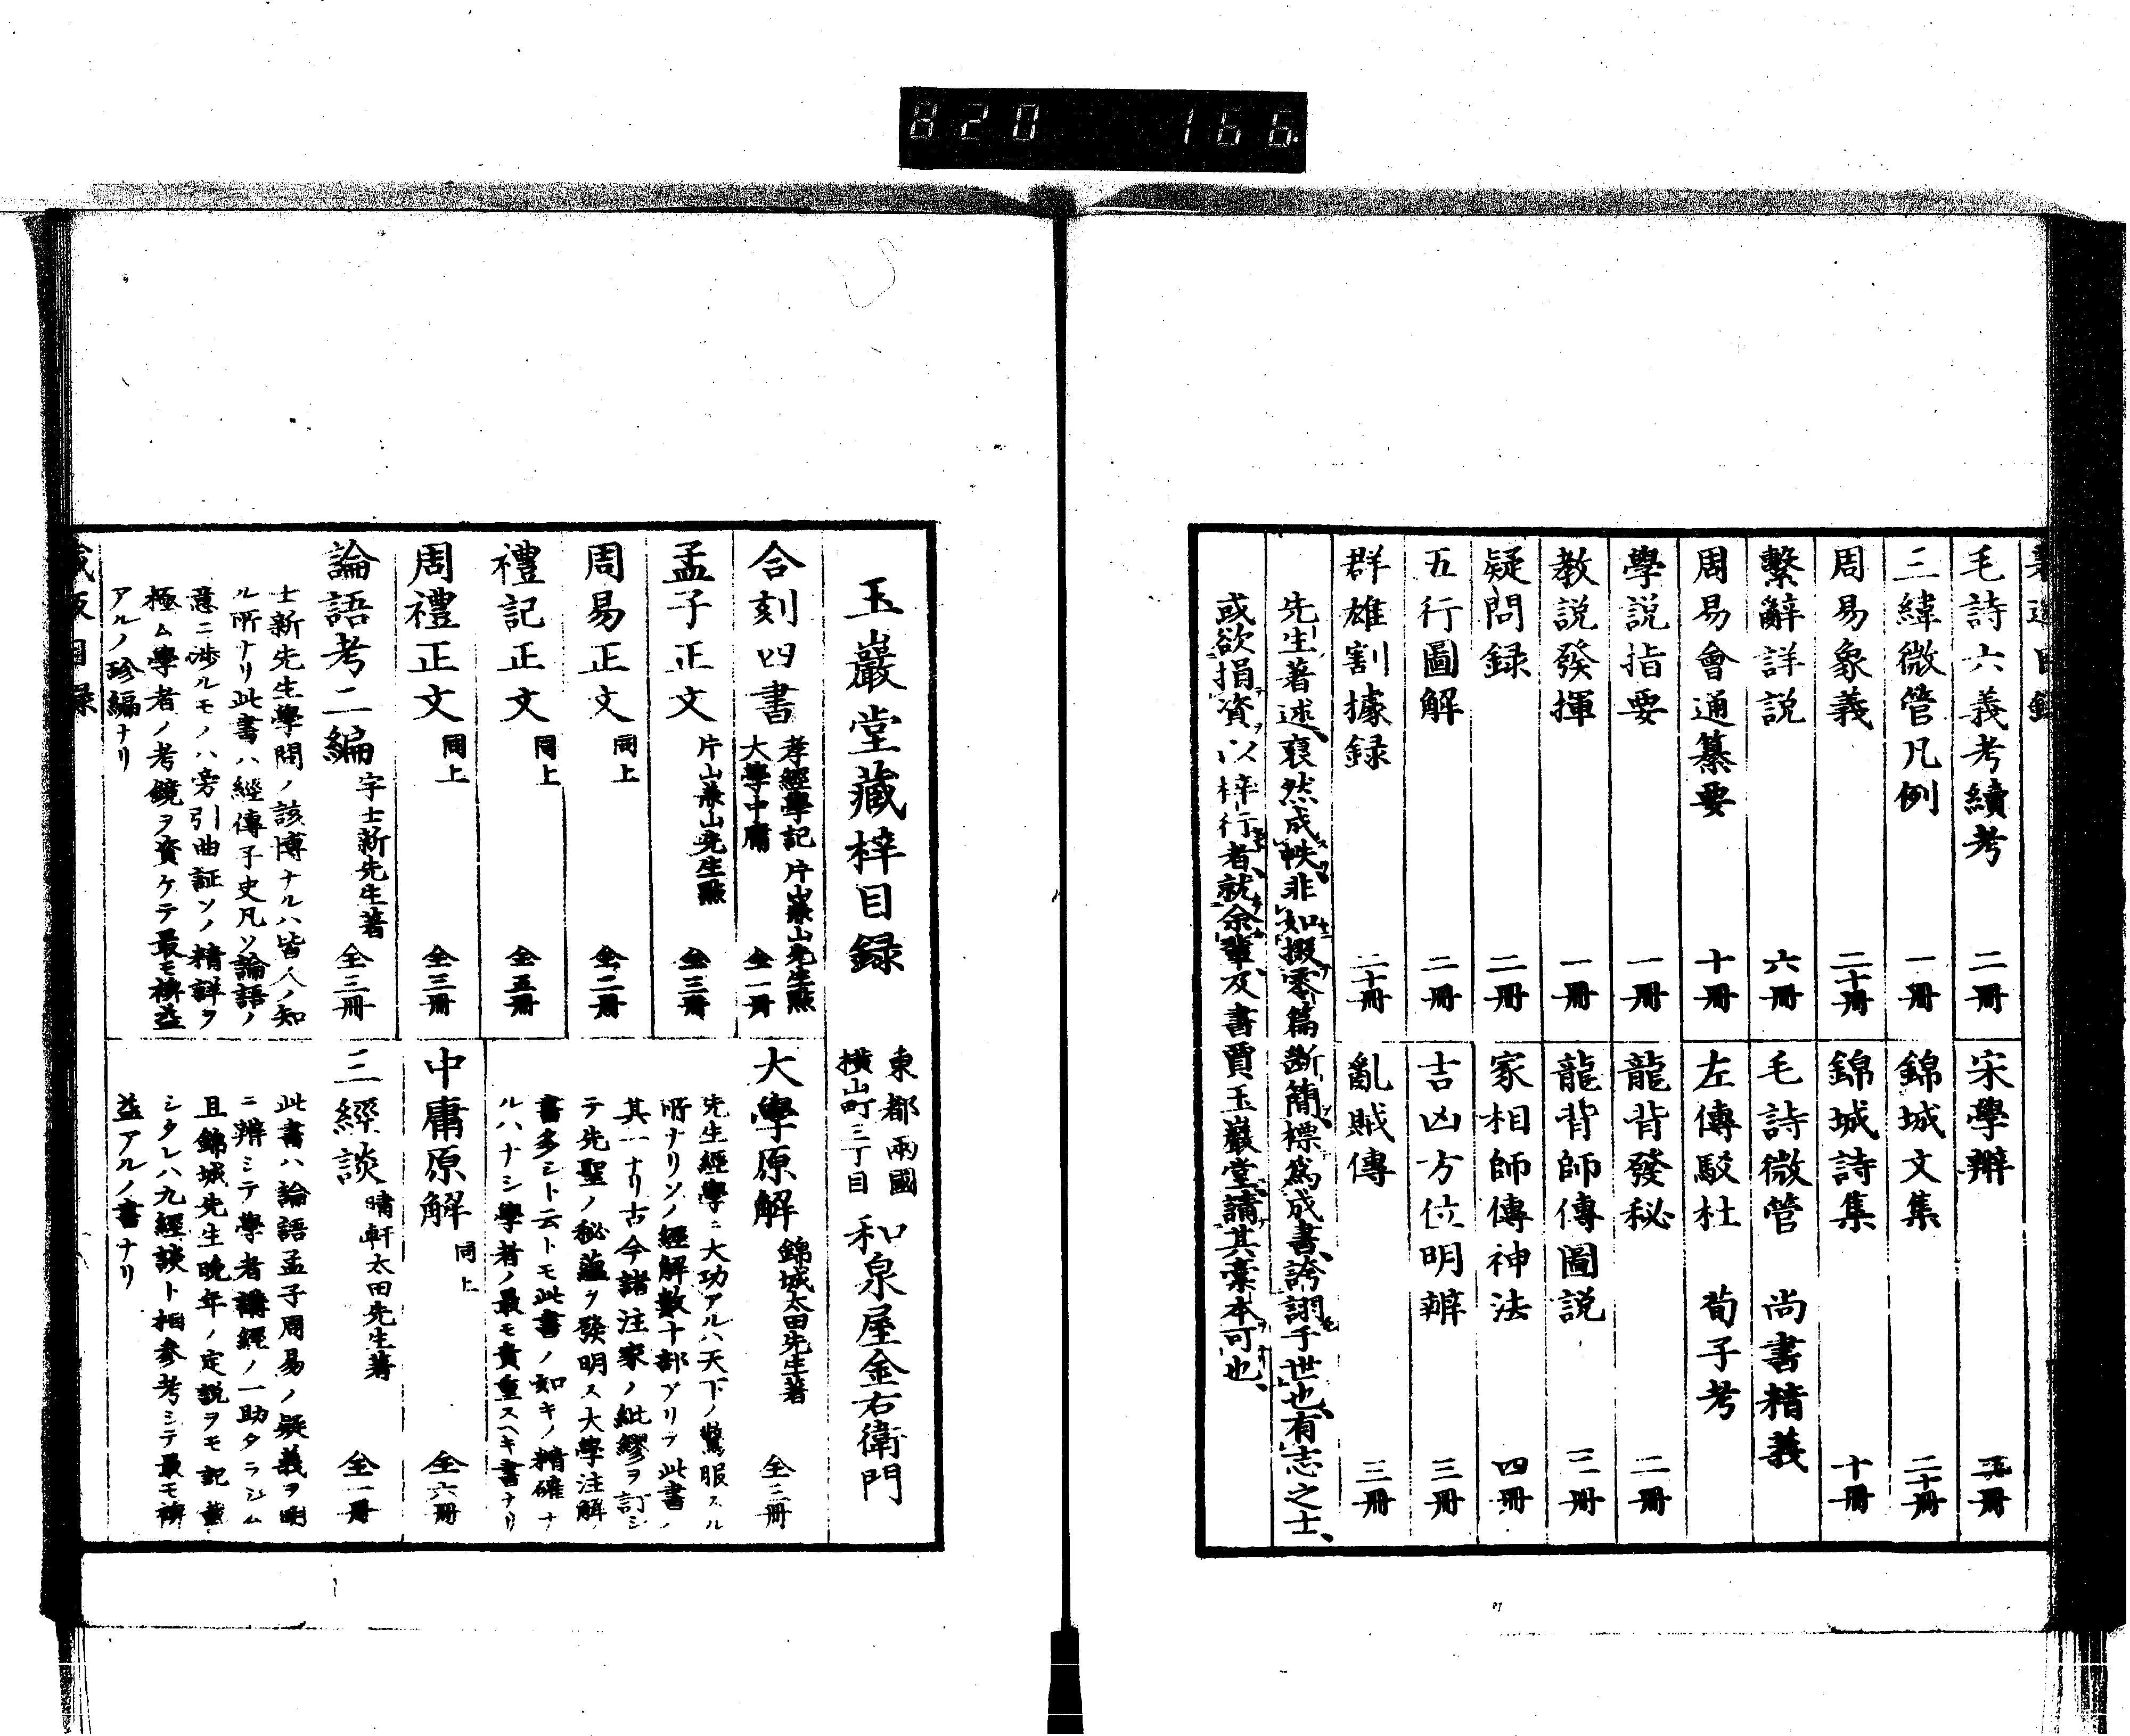 820 166.
毛詩六義考續考 二冊
三緯微管凡例 一冊
周易象義 二十冊
繫辭詳説 六冊
周易會通纂要 十冊
學説指要 一冊
教説發揮 一冊
疑問録 二冊
五行圖解 二冊
群雄割據録 二十冊
宋學辯
錦城文集 二十冊
錦城詩集 十冊
毛詩微管 尚書精義
左傳駁杜 荀子考
龍背發秘 二冊
龍背師傳圖説 三冊
家相師傳神法 四冊
吉凶方位明辨 三冊
亂賊傳 三冊
先生著述、裒然成帙、非如掇零篇斷簡、標爲成書、誇詡于世也、有志之士、
或欲捐資以梓行者、就余輩及書賈玉巖堂、請其稾本可也、
玉巖堂藏梓目録 東都兩國横山町三丁目 和泉屋金右衛門
合刻四書 孝經學記大學中庸 片山兼山先生點 全一冊
孟子正文 片山兼山先生點 全三冊
周易正文 同上 全二冊
禮記正文 同上 全五冊
周禮正文 同上 全三冊
論語考二編 宇士新先生著 全三冊
士新先生學問ノ該博ナルハ皆人ノ知
ル所ナリ此書ハ經傳子史凡ソ論語ノ
意ニ渉ルモノハ旁引曲証ソノ精詳ヲ
極ム學者ノ考鏡ヲ資ケテ最モ裨益
アルノ珍編ナリ
大學原解 錦城太田先生著 全三冊
先生經學ニ大功アルハ天下ノ驚服スル
所ナリソノ經解數十部アリテ此書ノ
其一ナリ古今諸注家ノ紕繆ヲ訂シ
テ先聖ノ秘蘊ヲ發明ス大學注解ノ
書多シト云トモ此書ノ如キノ精確ナ
ルハナシ學者ノ最モ貴重スヘキ書ナリ
中庸原解 同上 全六冊
三經談 晴軒太田先生著 全一冊
此書ハ論語孟子周易ノ疑義ヲ明
ニ辨ミテ學者講經ノ一助タラシム
且錦城先生晩年ノ定説ヲモ記載
シタレハ九經談ト相參考シテ最モ裨
益アルノ書ナリ